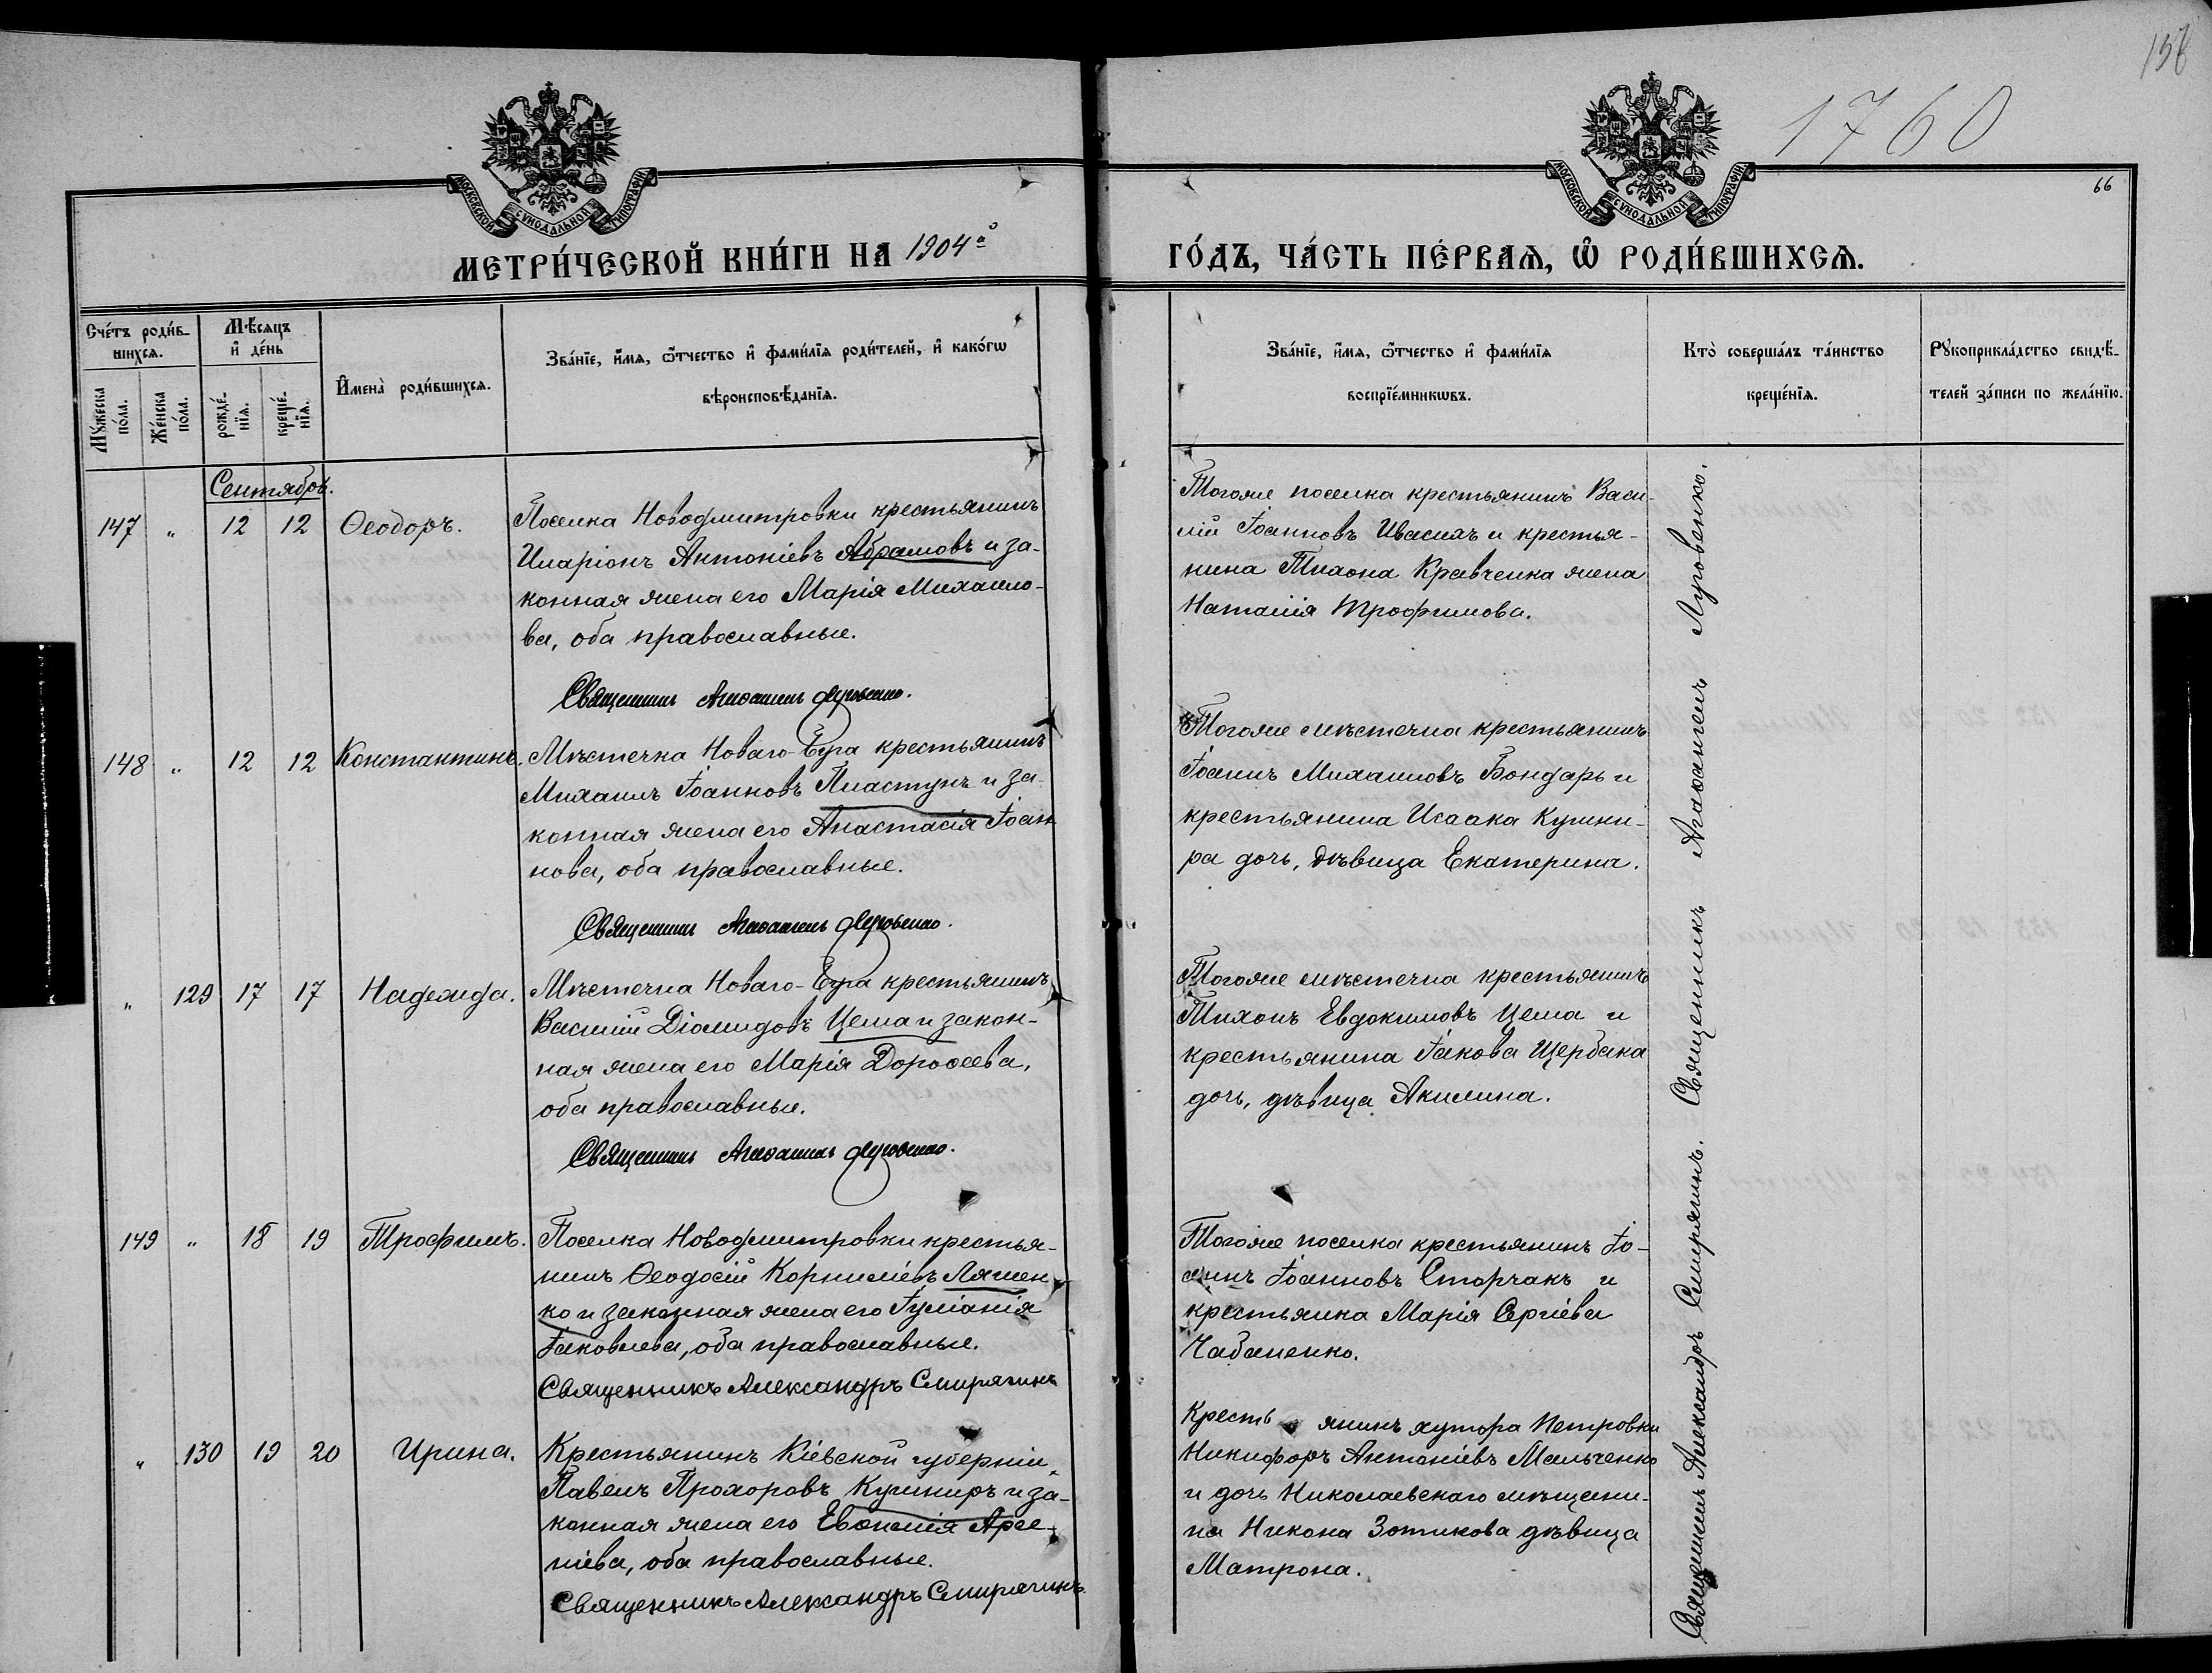 138
1760
66
МОСКОВСКОЙ СѴНОДАЛЬНОЙ ТИПОГРАФІИ
МОСКОВСКОЙ СѴНОДАЛЬНОЙ ТИПОГРАФІИ
МЕТРИ́ЧЕСКОЙ КНИ́ГИ НА 1904й
ГО́ДЪ, ЧА́СТЬ ПЕ́РВАѦ, Ѡ҆ РОДИ́ВШИХСѦ.
Сче́тъ роди́в-
шихсѧ.
Мѣ́сѧцъ
и҆ де́нь
Мꙋ́жеска
по́ла.
Же́нска
по́ла.
рожде́-
нїѧ.
креще́-
нїѧ.
И҆мена̀ роди́вшихсѧ.
Зва́нїе, и҆́мѧ, ѻ҆́тчество и҆ фами́лїѧ роди́телей, и҆ како́гѡ
вѣроисповѣ́данїѧ.
Зва́нїе, и҆́мѧ, ѻ҆́тчество и҆ фами́лїѧ
воспрїе́мникѡвъ.
Кто̀ соверша́лъ та́инство
креще́нїѧ.
Рꙋкоприкла́дство свидѣ́-
телей за́писи по жела́нїю.
Сентябрь.
147 " 12 12 Ѳеодоръ.
Поселка Новодмитровки крестьянинъ
Иларіонъ Антоніевъ Абрамовъ и за-
конная жена его Марія Михаило-
ва, оба православные.
Священникъ Агаѳангелъ Луговенко.
Тогоже поселка крестьянинъ Васи-
лій Іоанновъ Ивасихъ и крестья-
нина Тихона Кравченка жена
Наталія Трофимова.
148 " 12 12 Константинъ.
Мѣстечка Новаго-Буга крестьянинъ
Михаилъ Іоанновъ Пластунъ и за-
конная жена его Анастасія Іоан-
нова, оба православные.
Священникъ Агаѳангелъ Луговенко.
Тогоже мѣстечка крестьянинъ
Іоаннъ Михаиловъ Бондарь и
крестьянина Исаака Кушни-
ра дочь, дѣвица Екатерина.
" 129 17 17 Надежда.
Мѣстечка Новаго-Буга крестьянинъ
Василій Діомидовъ Цема и закон-
ная жена его Марія Дороѳеева,
оба православные.
Священникъ Агаѳангелъ Луговенко.
Тогоже мѣстечка крестьянинъ
Тихонъ Евдокимовъ Цема и
крестьянина Іакова Щербака
дочь, дѣвица Акилина.
149 " 18 19 Трофимъ.
Поселка Новодмитровки крестья-
нинъ Ѳеодосій Корниліевъ Ляшен-
ко и законная жена его Іуліанія
Іаковлева, оба православные.
Священникъ Александръ Смирягинъ
Тогоже поселка крестьянинъ Іо-
аннъ Іоанновъ Сторчакъ и
крестьянка Марія Сергіева
Чабаненко.
" 130 19 20 Ирина.
Крестьянинъ Кіевской губерніи
Павелъ Прохоровъ Кушниръ и за-
конная жена его Евѳимія Арсе-
ніева, оба православные.
Священникъ Александръ Смирягинъ
Кресть янинъ хутора Петровки
Никифоръ Антоніевъ Мальченко
и дочь Николаевскаго мѣщани-
на Никона Зотикова дѣвица
Матрона.
Священникъ Александръ Смирягинъ. Священникъ Агаѳангелъ Луговенко.